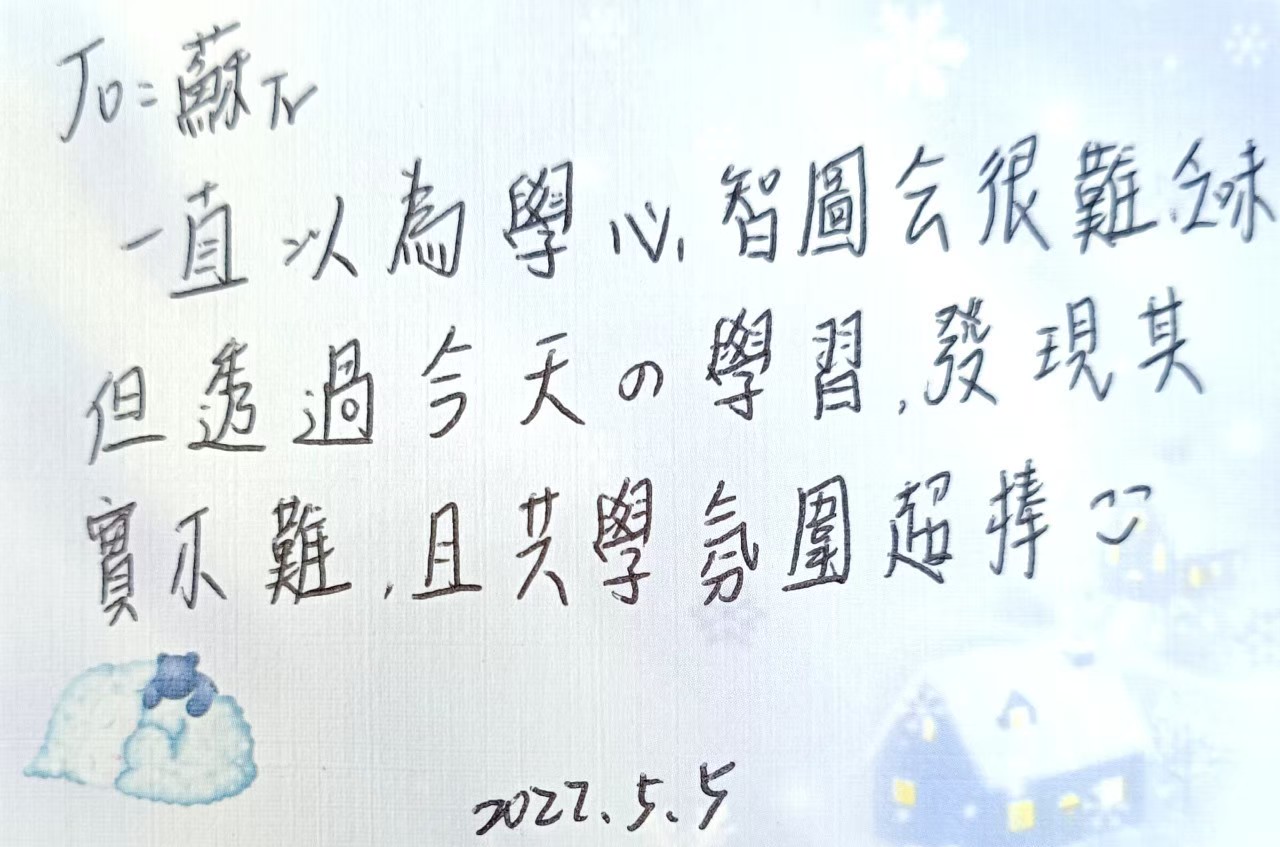 To=蘇Tr
一直以為學心智圖会很難念味
但透過今天の學習,發現其
實不難,且共學氛圍超捧
2022.5.5